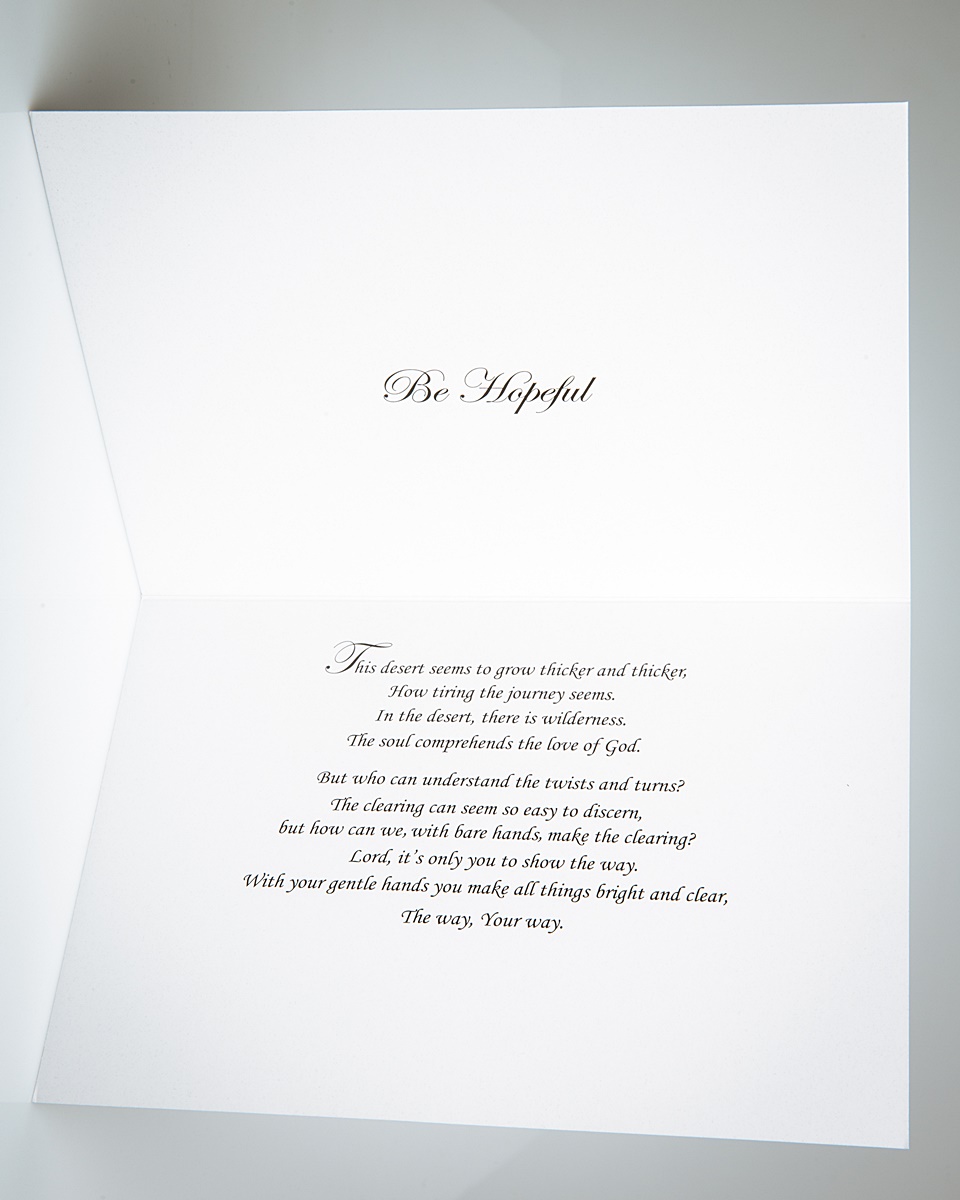 Be Hopeful
This desert seems to grow thicker and thicker,
How tiring the journey seems.
In the desert, there is wilderness.
The soul comprehends the love of God.
But who can understand the twists and turns?
The clearing can seem so easy to discern,
but how can we, with bare hands, make the clearing?
Lord, it's only you to show the way.
With your gentle hands you make all things bright and clear,
The way, Your way.